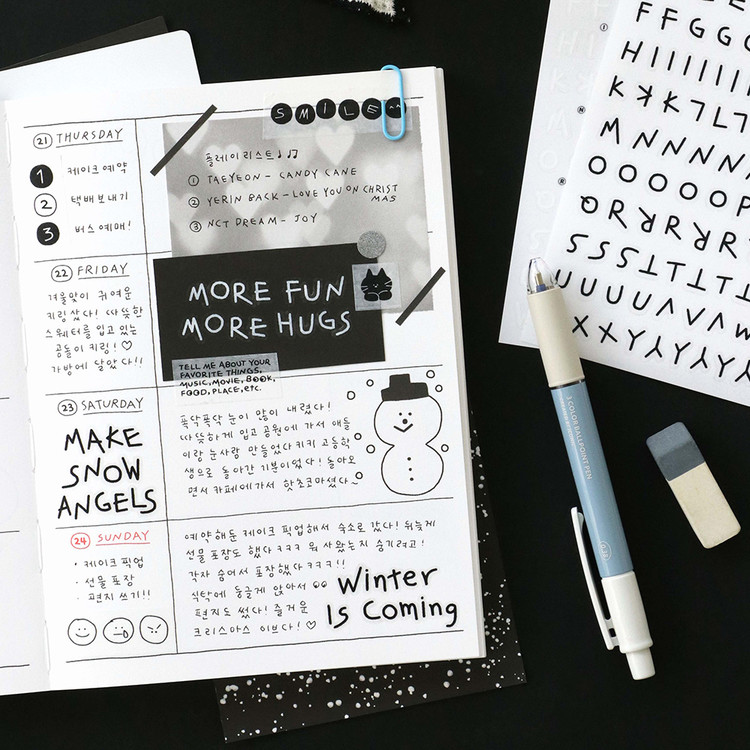 SMILE
21 THURSDAY
1 케이크 예약
2 택배 보내기
3 버스 예매!
플레이리스트♩♫
① TAEYEON - CANDY CANE
② YERIN BACK - LOVE YOU ON CHRIST
MAS
③ NCT DREAM - JOY
22 FRIDAY
겨울맞이 귀여운
키링 샀다! 따뜻한
스웨터를 입고 있는
곰돌이 키링! ♡
가방에 달았다!!
MORE FUN
MORE HUGS
TELL ME ABOUT YOUR
FAVORITE THINGS,
MUSIC, MOVIE, BOOK,
FOOD, PLACE, etc.
23 SATURDAY
MAKE
SNOW
ANGELS
푹닥푹닥 눈이 많이 내렸다!
따뜻하게 입고 공원에 가서 애들
이랑 눈사람 만들었다키키 고등학
생으로 돌아간 기분이었다! 돌아오
면서 카페에가서 핫초코마셨다~
24 SUNDAY
· 케이크 픽업
· 선물 포장
· 편지 쓰기!!
예약해둔 케이크 픽업해서 숙소로 갔다! 뒤늦게
선물 포장도 했다ㅋㅋㅋ 뭐 샀는지 숨기려고!
각자 숨어서 포장했다ㅋㅋㅋ
식탁에 둥글게 앉아서
편지도 썼다! 즐거운
크리스마스 이브다! ♡
Winter
Is Coming
3 COLOR BALLPOINT PEN
F F G G
H I I I I I I
K K K 7 L 7
M N N N N
O O O O O P
Q R R R R
S S T T S
U U U V
X Y Y Y